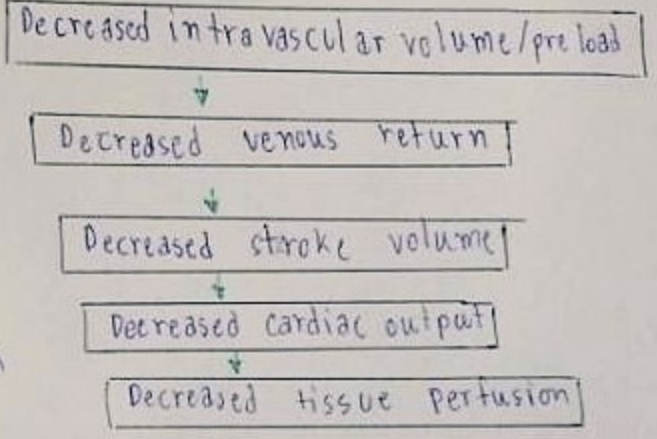 Decreased intravascular volume/preload
Decreased venous return
Decreased stroke volume
Decreased cardiac output
Decreased tissue perfusion